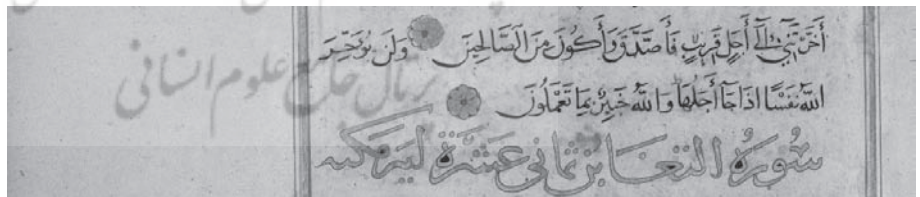 أَخَّرْتَنِي إِلَىٰ أَجَلٍ قَرِيبٍ فَأَصَّدَّقَ وَأَكُونَ مِنَ الصَّالِحِينَ وَلَن يُؤَخِّرَ
اللَّهُ نَفْسًا اذَا جَاءَ أَجَلُهَا وَاللَّهُ خَبِيرٌ بِمَا تَعْمَلُونَ
سُورَةُ التغَابُن ثماني عَشرَة اية مكيه
پرتال جامع علوم انسانی